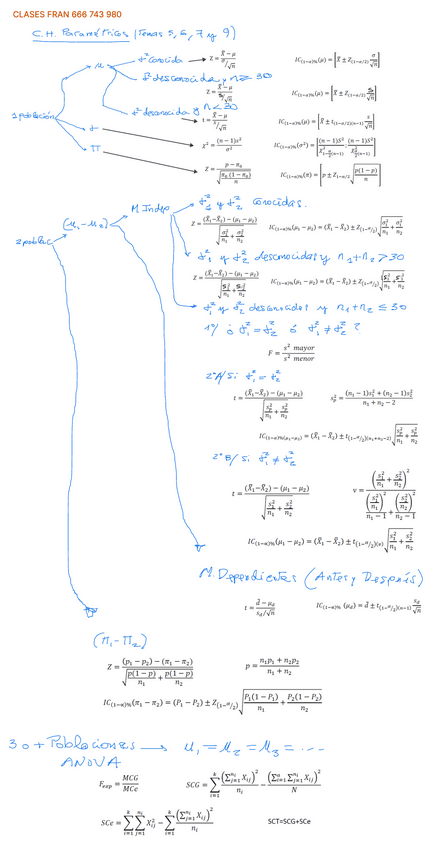 CLASES FRAN 666 743 980
C.H. Paramétricos (Temas 5, 6, 7 y 9)
1 población
μ
σ² conocida
Z = (X̄ − μ)/(σ/√n)
IC(1−α)%(μ) = [X̄ ± Z(1−α/2) σ/√n]
σ² desconocida y n ≥ 30
Z = (X̄ − μ)/(s/√n)
IC(1−α)%(μ) = [X̄ ± Z(1−α/2) s/√n]
σ² desconocida y n < 30
t = (X̄ − μ)/(s/√n)
IC(1−α)%(μ) = [X̄ ± t(1−α/2)(n−1) s/√n]
χ² = (n − 1)s²/σ²
Π
2 poblac
(μ₁ − μ₂)
M Indep
σ₁² y σ₂² conocidas.
Z = ((X̄₁ − X̄₂) − (μ₁ − μ₂))/√(σ₁²/n₁ + σ₂²/n₂)
IC(1−α)%(μ₁ − μ₂) = (X̄₁ − X̄₂) ± Z(1−α/2) √(σ₁²/n₁ + σ₂²/n₂)
σ₁² y σ₂² desconocidas y n₁+n₂ > 30
Z = ((X̄₁ − X̄₂) − (μ₁ − μ₂))/√(s₁²/n₁ + s₂²/n₂)
IC(1−α)%(μ₁ − μ₂) = (X̄₁ − X̄₂) ± Z(1−α/2) √(s₁²/n₁ + s₂²/n₂)
σ₁² y σ₂² desconocidas y n₁+n₂ ≤ 30
1º/ ó σ₁² = σ₂² ó σ₁² ≠ σ₂² ?
F = s² mayor / s² menor
2ºA/ Si σ₁² = σ₂²
t = ((X̄₁ − X̄₂) − (μ₁ − μ₂))/√(sₚ²/n₁ + sₚ²/n₂)
sₚ² = ((n₁ − 1)s₁² + (n₂ − 1)s₂²)/(n₁ + n₂ − 2)
IC(1−α)%(μ₁−μ₂) = (X̄₁ − X̄₂) ± t(1−α/2)(n₁+n₂−2) √(sₚ²/n₁ + sₚ²/n₂)
2ºB/ Si σ₁² ≠ σ₂²
t = ((X̄₁ − X̄₂) − (μ₁ − μ₂))/√(s₁²/n₁ + s₂²/n₂)
v = (s₁²/n₁ + s₂²/n₂)²/((s₁²/n₁)²/(n₁ − 1) + (s₂²/n₂)²/(n₂ − 1))
IC(1−α)%(μ₁ − μ₂) = (X̄₁ − X̄₂) ± t(1−α/2)(v) √(s₁²/n₁ + s₂²/n₂)
M. Dependientes (Antes y Después)
t = (d̄ − μd)/(sd/√n)
IC(1−α)% (μd) = d̄ ± t(1−α/2)(n−1) sd/√n
(Π₁ − Π₂)
Z = ((p₁ − p₂) − (π₁ − π₂))/√(p(1 − p)/n₁ + p(1 − p)/n₂)
p = (n₁p₁ + n₂p₂)/(n₁ + n₂)
IC(1−α)%(π₁ − π₂) = (P₁ − P₂) ± Z(1−α/2) √(P₁(1 − P₁)/n₁ + P₂(1 − P₂)/n₂)
3 o + Poblaciones → μ₁ = μ₂ = μ₃ = ...
ANOVA
Fexp = MCG/MCe
SCT=SCG+SCe